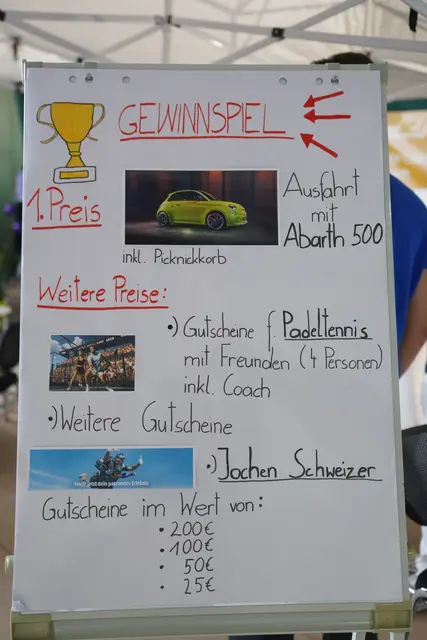 GEWINNSPIEL
1. Preis
Ausfahrt
mit
Abarth 500
inkl. Picknickkorb
Weitere Preise:
•) Gutscheine f. Padeltennis
mit Freunden (4 Personen)
inkl. Coach
•) Weitere Gutscheine
•) Jochen Schweizer
Gutscheine im Wert von:
• 200€
• 100€
• 50€
• 25€